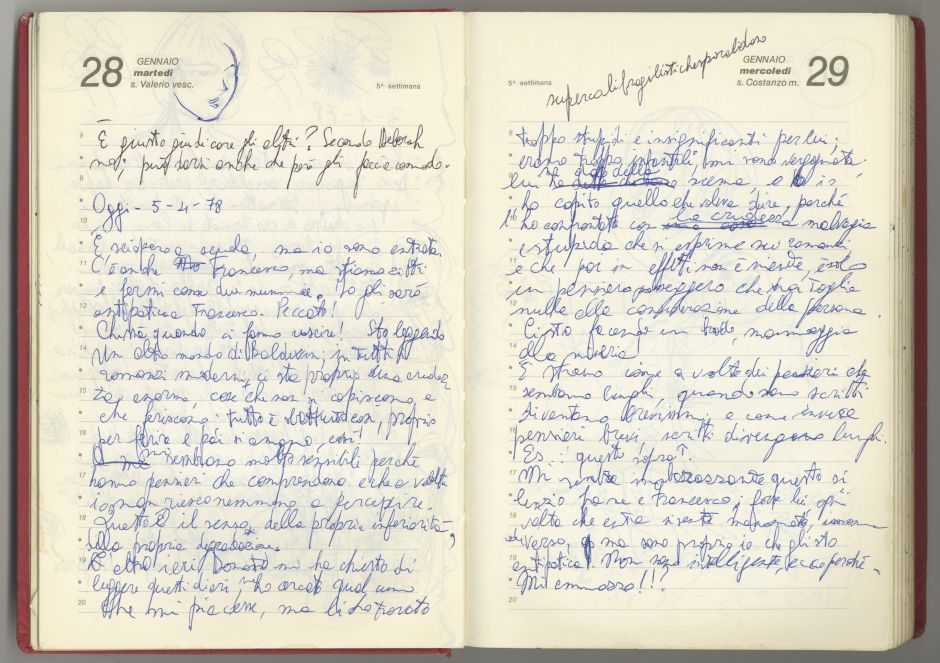 28
GENNAIO
martedì
s. Valerio vesc.
5ª settimana
È giusto giudicare gli altri? Secondo Deborah
no; può darsi anche che però gli faccia comodo.
Oggi - 5-4-78
È sciopero a scuola, ma io sono entrata.
C'è anche Francesco, ma stiamo zitti
e fermi come due mummie. Io gli sarò
antipatica Francesco. Peccato!
Chissà quando ci fanno uscire! Sto leggendo
Un altro mondo di Baldwin, in tutti i
romanzi moderni, ci sta proprio una crudez
za enorme, cose che non si capiscono e
che feriscono: tutto è buttato così, proprio
per ferire e poi si
mi sembrano molto sensibili perché
hanno pensieri che comprendono e che a volte
io non riesco nemmeno a percepire.
Questo è il senso della propria inferiorità,
della propria
L'altro ieri Donato mi ha chiesto di
leggere questi diari, ho cercato qual cuno
che mi piacesse, ma li ho trovato
5ª settimana
supercalifragilistichespiralidoso
GENNAIO
mercoledì
s. Costanzo m.
29
troppo stupidi e insignificanti per lui;
erano troppo infantili, mi sono vergognata.
lui ha della scema, e io
ho capito quello che voleva dire, perché
l'ho confrontato con la crudezza a malvagia
e stupida che si esprime nei romanzi
e che poi in effetti non è niente, è solo
un pensiero passeggero che non toglie
nulla alla considerazione della persona.
Ci sto facendo un mannaggia
alla miseria!
È strano come a volte dei pensieri che
sembrano lunghi, quando sono scritti
diventano brevissimi, e come invece
pensieri brevi, scritti divengono lunghi.
Es.: questo sopra!
Mi sembra imbarazzante questo si
lenzio fra me e Francesco; forse lui ogni
volta che
verso, o ma sono proprio io che gli sto
antipatica! Non sono intelligente, ecco perché.
Mi ammazzo!!!